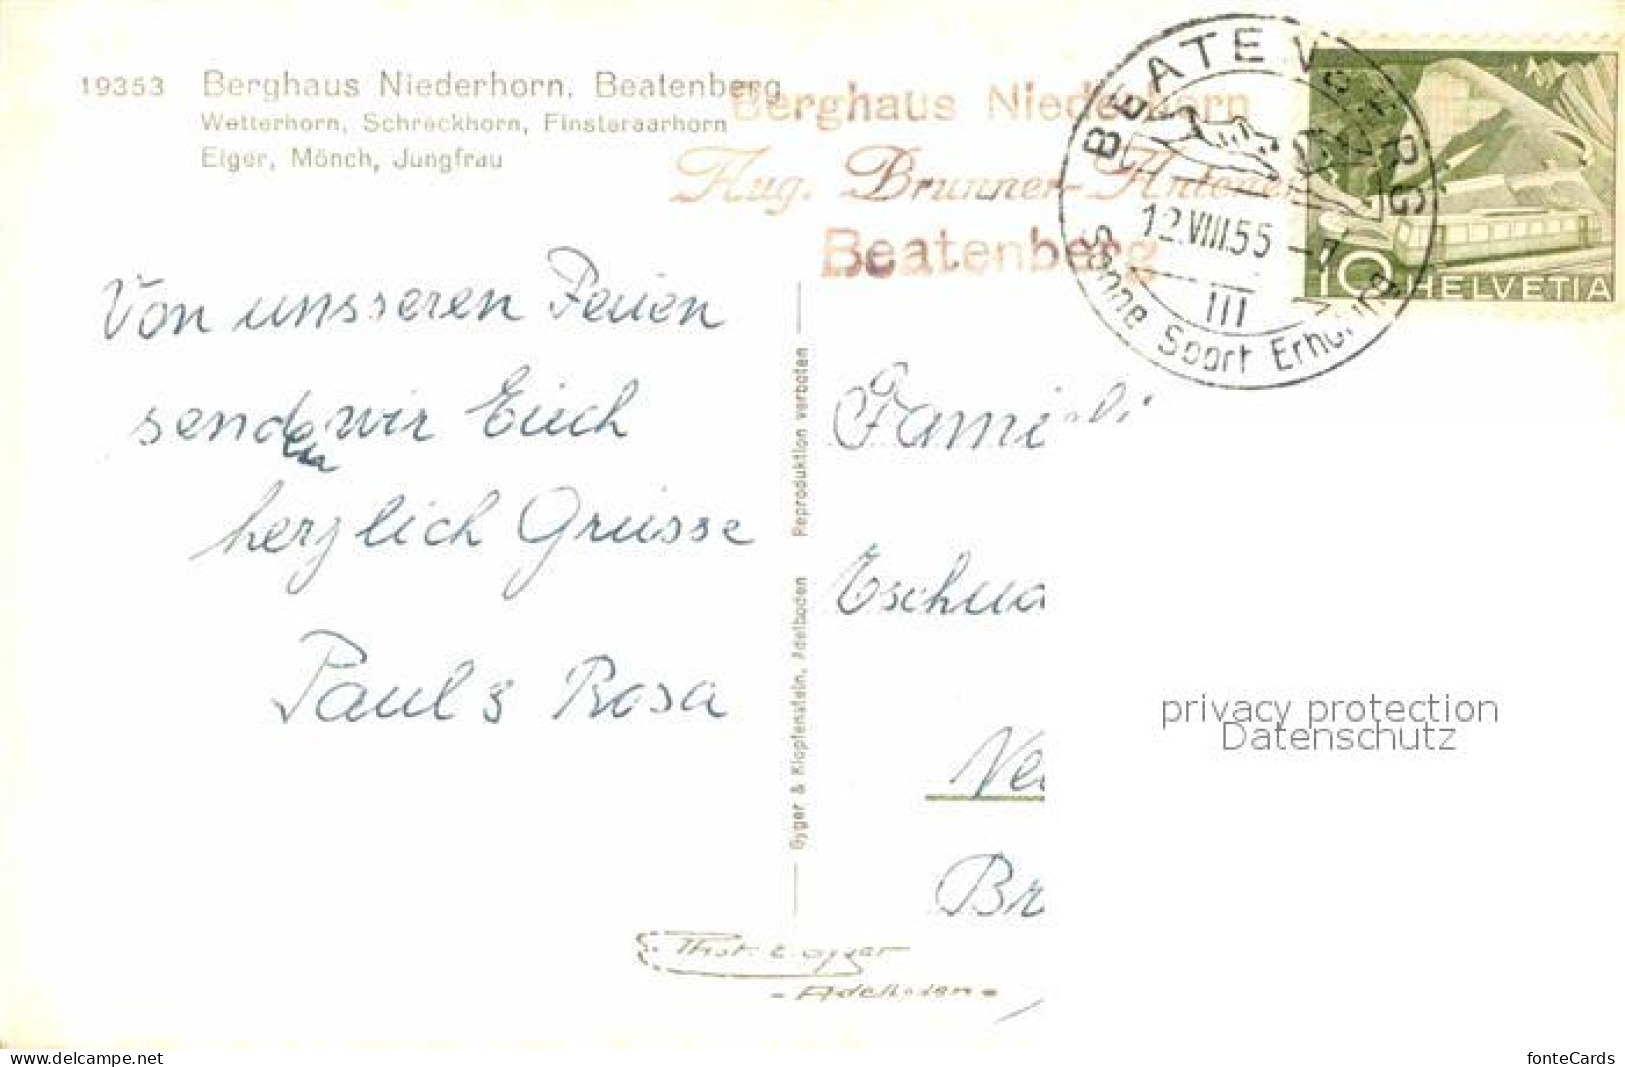 19353 Berghaus Niederhorn, Beatenberg
Wetterhorn, Schreckhorn, Finsteraarhorn
Eiger, Mönch, Jungfrau
Berghaus Niederhorn
Aug. Brunner-
Beatenberg
BEATENBERG
12.VIII.55 - 7
III
Sonne Sport Erholung
10 HELVETIA
Von unsseren Ferien
senden wir Euch
herzlich Grüsse
Paul & Rosa
Gyger & Klopfenstein, Adelboden Reproduktion verboten
Famili
Eschua
Ne
Br
Phot. E. Gyger
- Adelboden -
privacy protection
Datenschutz
www.delcampe.net
fonteCards